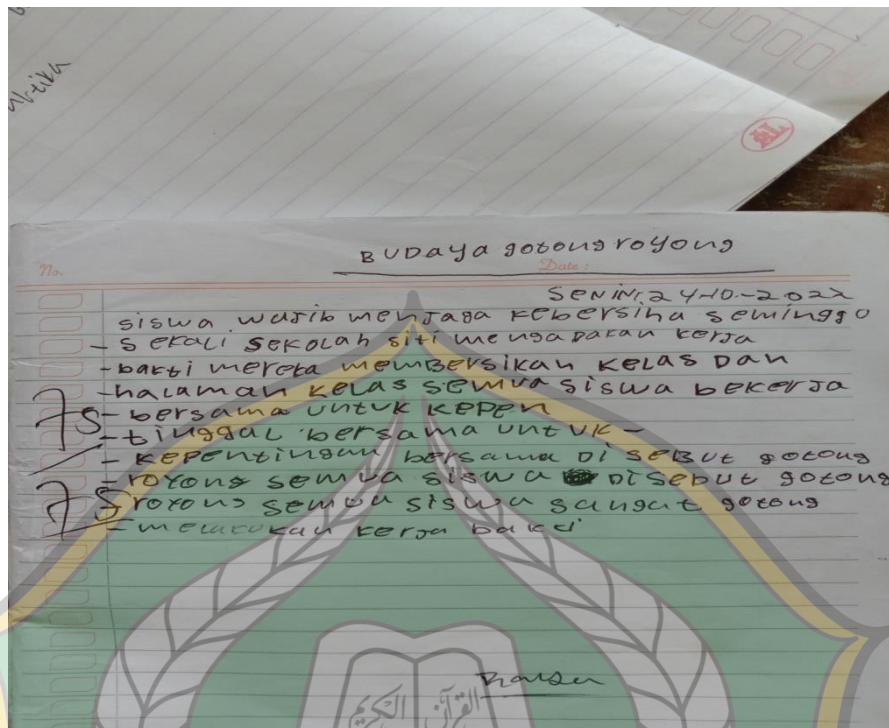 BUDaya gotong royong
No.
Date:
SENIN, 24-10-2022
siswa wajib menjaga kebersiha seminggo
- sekali sekolah siti mengadakan kerja
- bakti mereka membersikan kelas Dan
- halaman kelas semua siswa bekerja
- bersama untuk kepen
- tinggal bersama untuk -
- kepentingan bersama Di sebut gotong
- royong semua siswa Disebut gotong
- royong semua siswa sangat gotong
- melakukan kerja bakti
75
75
القرآن الكريم